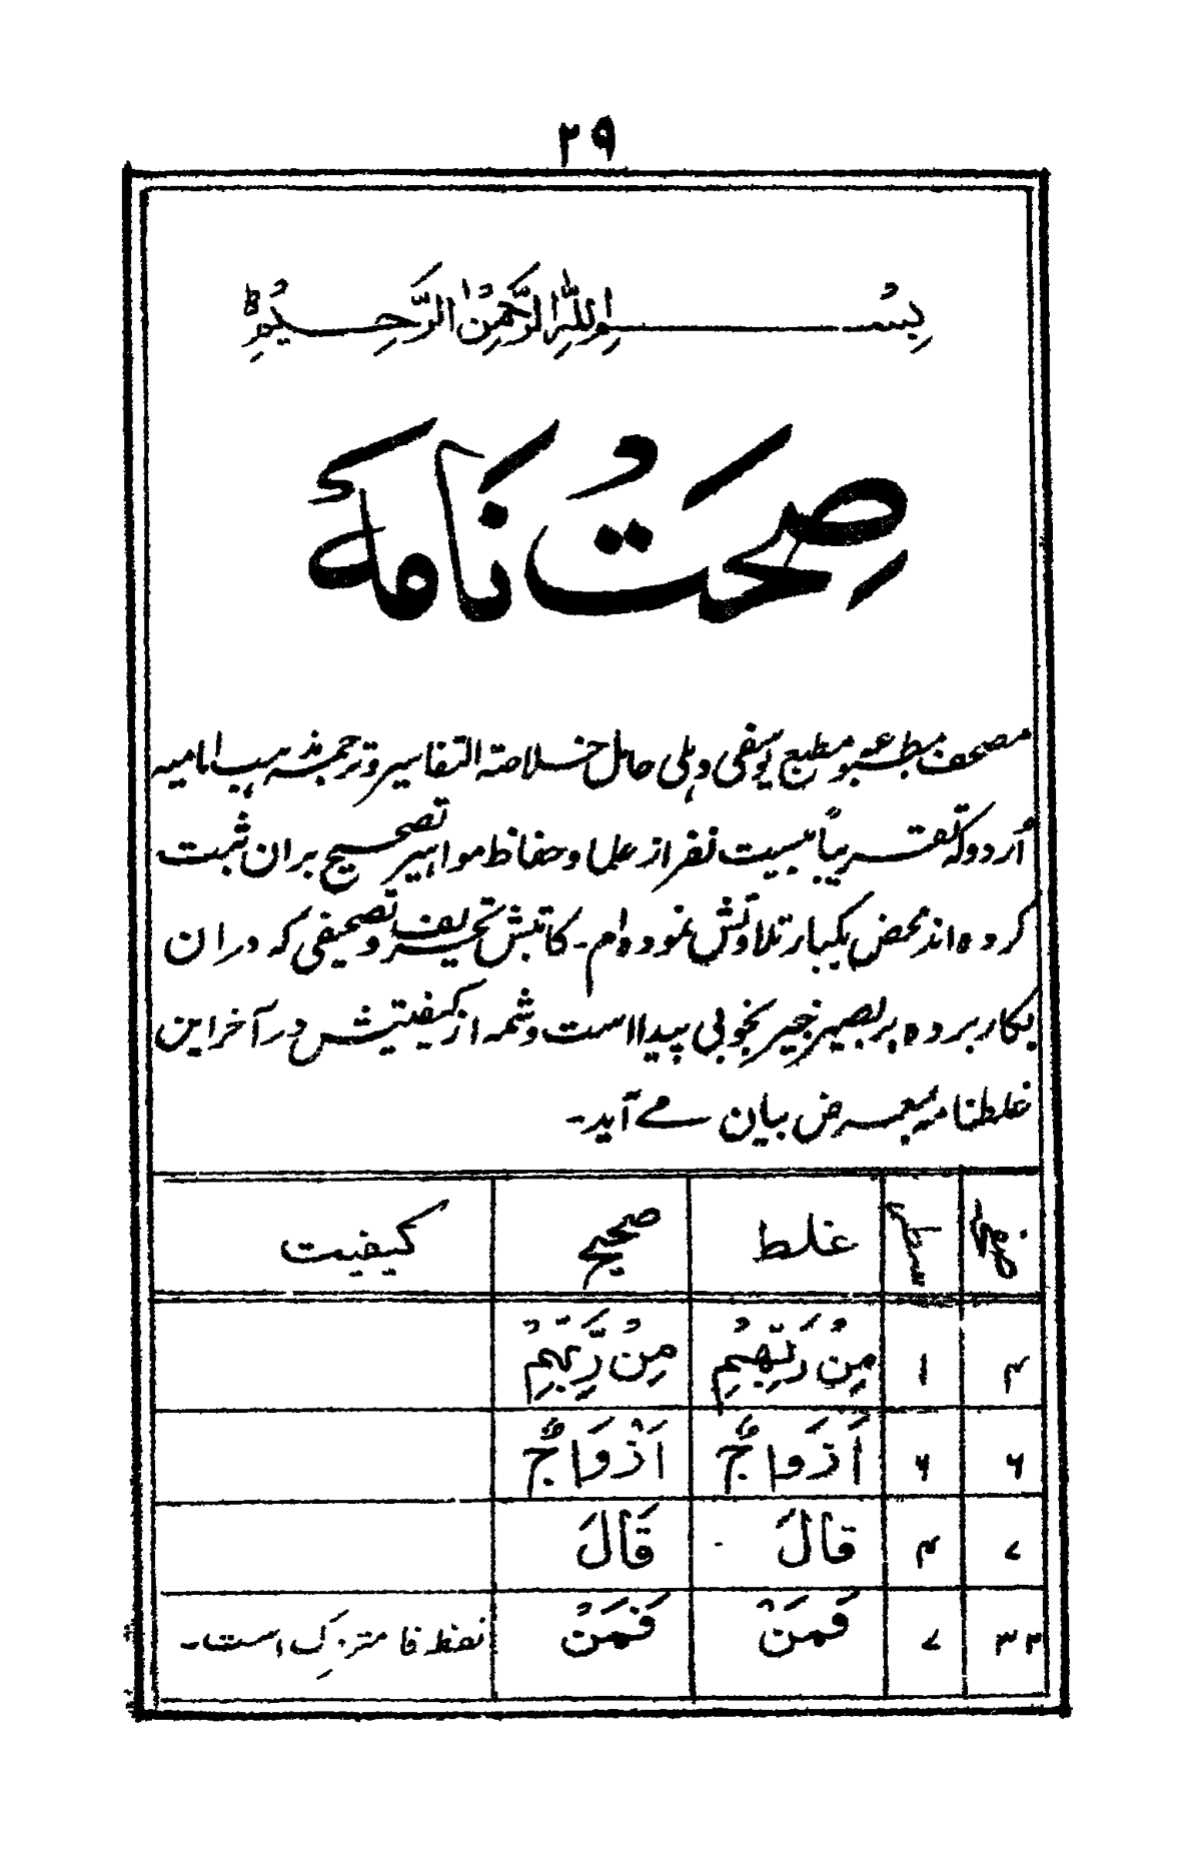 ۲۹
بِسْمِ اللّٰهِ الرَّحْمٰنِ الرَّحِيْمِ ط
صِحَتْ نَامَهٔ
مصحف مطبوعہ مطبع یوسفی دہلی حامل خلاصتہ التفاسیر و ترجمہ مذہب امامیہ
اُردو کہ تقریباً بیست نفر از علما و حفاظ مواہیر تصحیح بران ثبت
کردہ اند محض یکبار تلاوتش نمودہ ام۔ کاتبش تحریف و تصحیفی کہ دران
بکار بردہ بر بصیر خبیر بخوبی پیدا است و شمہ از کیفیتش در آخر این
غلطنامہ بمعرض بیان مے آید۔
صفحہ سطر غلط صحیح کیفیت
۴ ۱ مِنْ رَبِّهِمْ مِنْ رَّبِّهِمْ
۶ ۶ اَزْوَاجٌ اَزْوَاجٌ
۷ ۴ قالَ قَالَ
۳۲ ۷ فَمَنْ فَمَنْ نقطہ فا متروک است۔